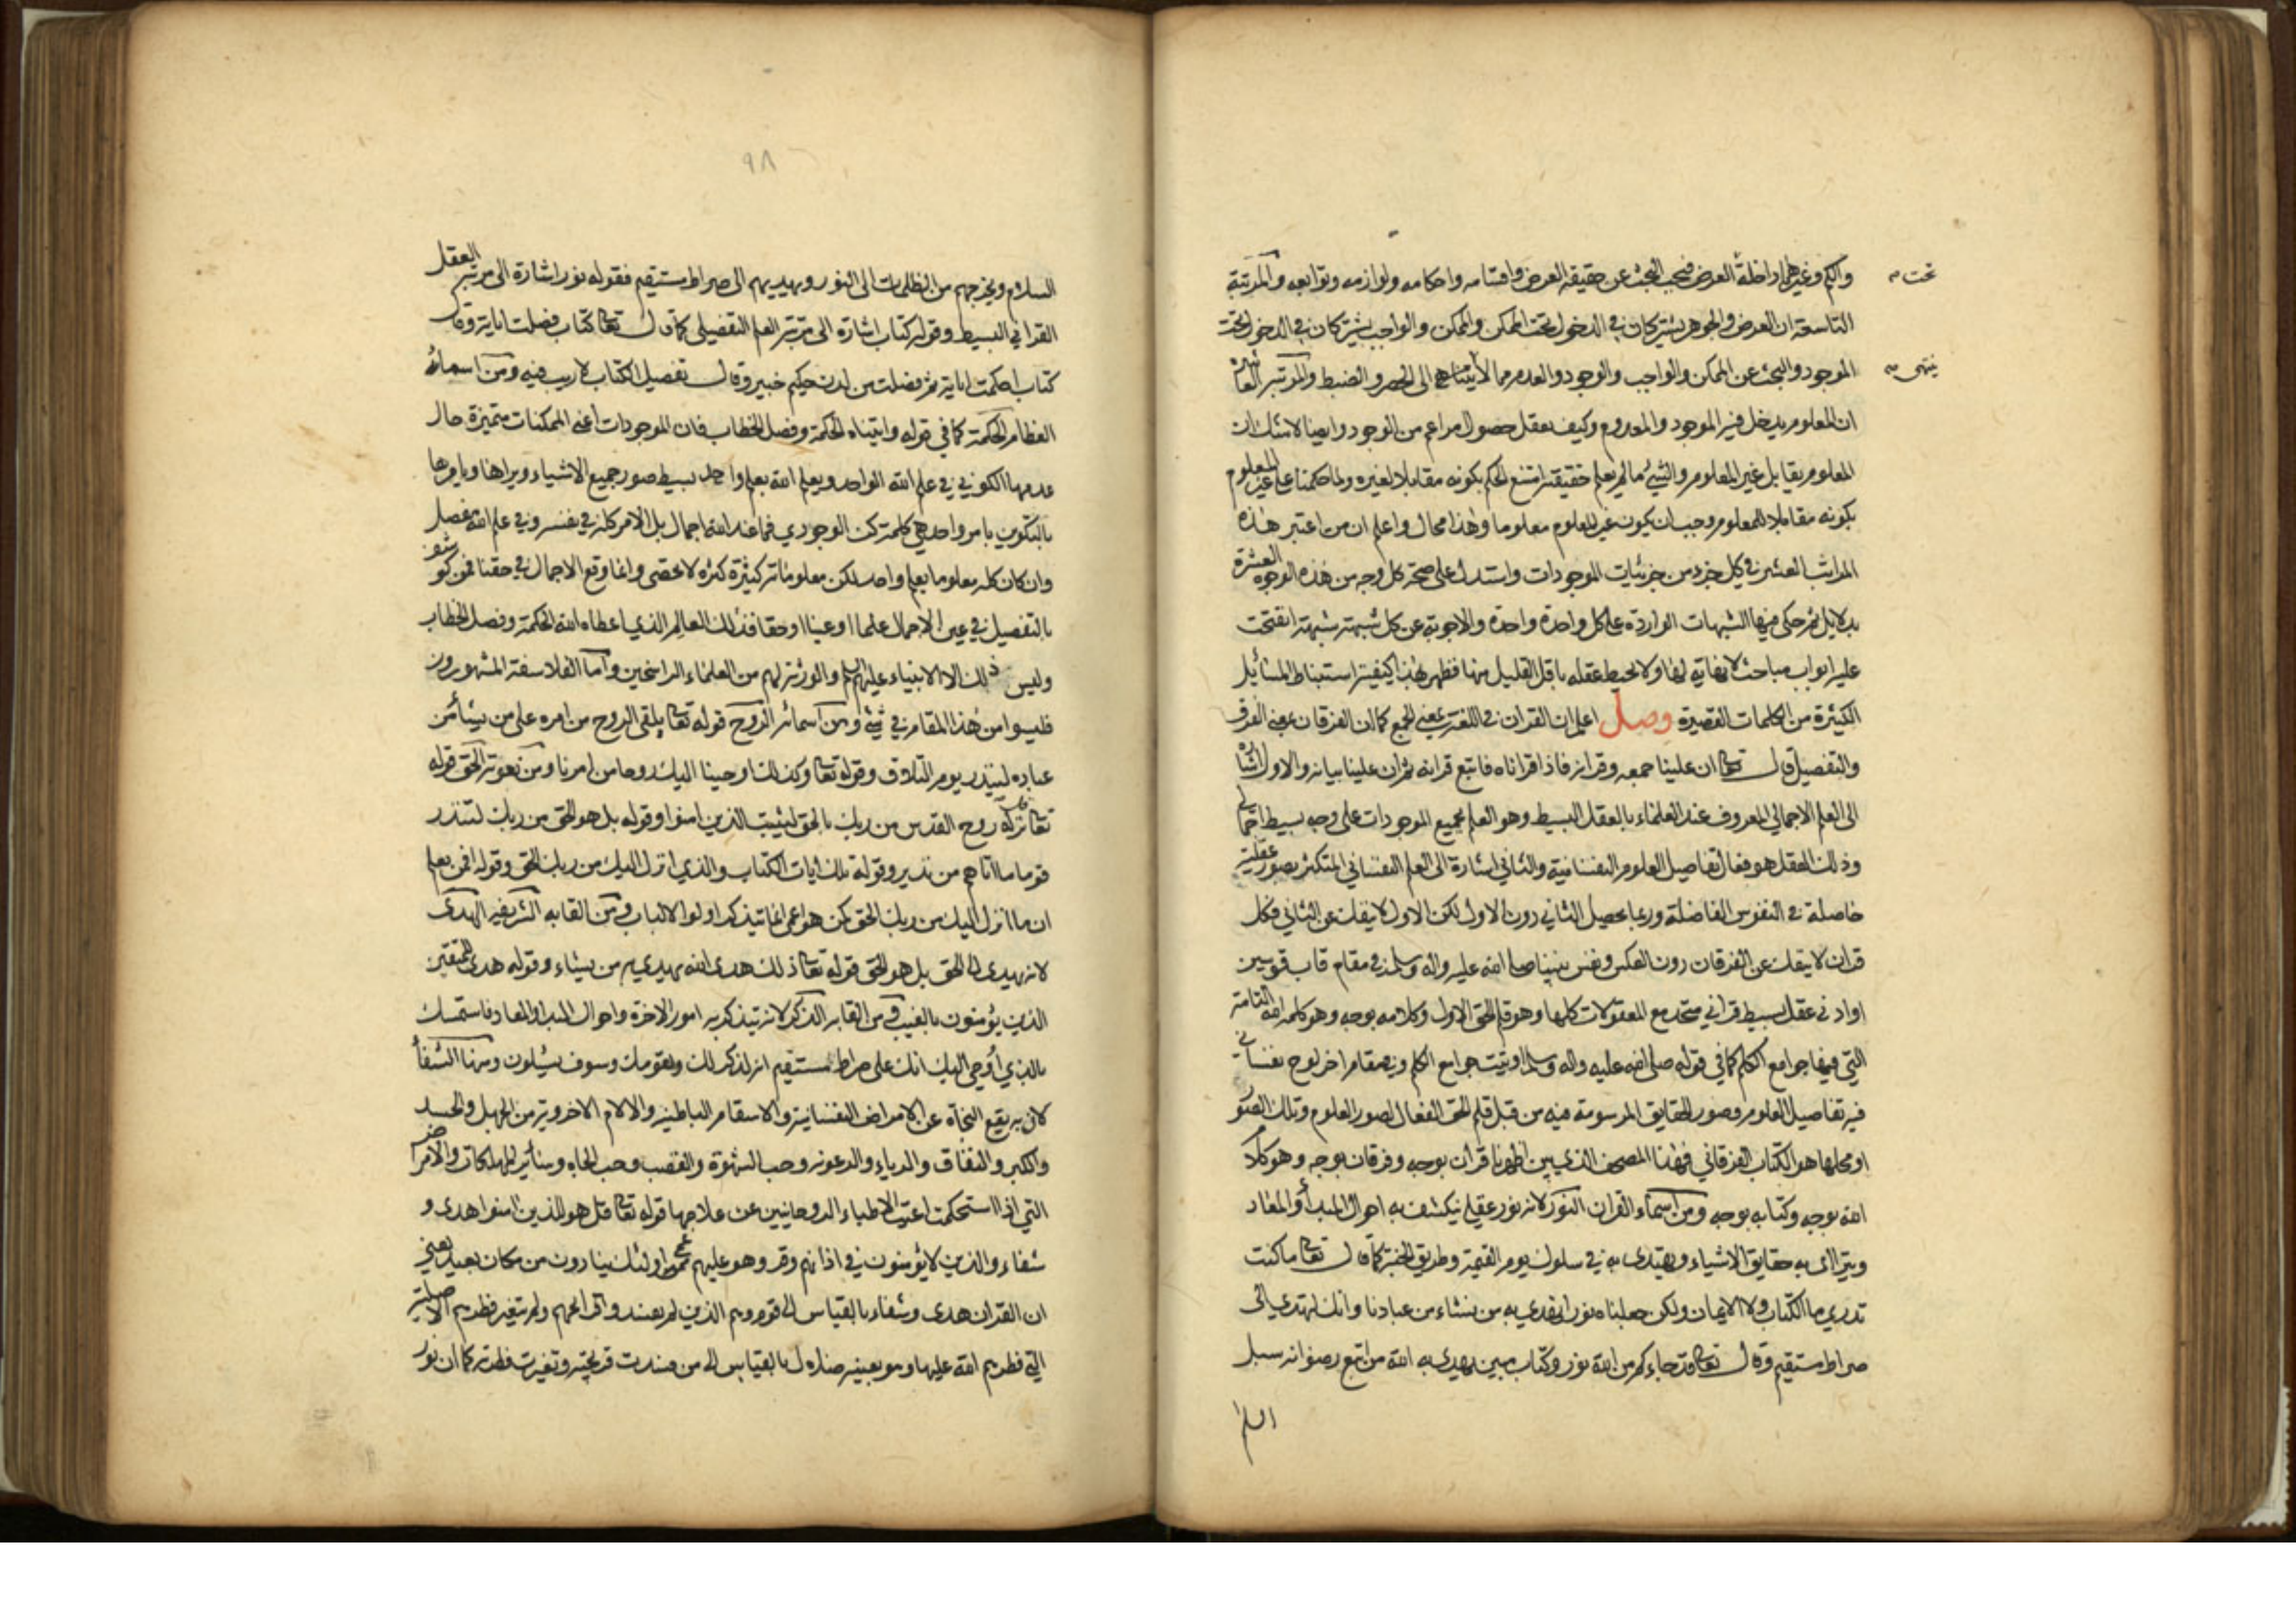 والكم وغيرها داخلة العرض فيجب البحث عن حقيقة العرض واقسامه واحكامه ولوازمه وتوابعه والمرتبة
تحت
التاسعة ان العرض والجوهر يشتركان في الدخول تحت الممكن والممكن والواجب يشتركان في الدخول تحت
الموجود والبحث عن الممكن والواجب والوجود والعدم مما لا يتناهى الى الحصر والضبط والمرتبة العاشرة
ينتهى
ان المعلوم يدخل فيه الموجود والمعدوم وكيف يعقل حصول امر اعم من الوجود وايضا لا شك ان
المعلوم يقابل غير المعلوم والشئ ما لم يعلم حقيقته امتنع الحكم بكونه مقابلا لغيره ولما حكمنا على غير المعلوم
بكونه مقابلا للمعلوم وجب ان يكون غير المعلوم معلوما وهذا محال واعلم ان من اعتبر هذه
المراتب العشر في كل جزء من جزئيات الموجودات واستدل على صحة كل وجه من هذه الوجوه العشرة
بدلايل ثم حكى فيها الشبهات الواردة على كل واحدة واحدة والاجوبة عن كل شبهة شبهة انفتحت
عليه ابواب مباحث لا نهاية لها ولا يحيط عقله باقل القليل منها فظهر بهذا كيفية استنباط المسائل
الكثيرة من الكلمات القصيرة وصل اعلم ان القران في اللغة بمعنى الجمع كما ان الفرقان بمعنى الفرق
والتفصيل قال تعا ان علينا جمعه وقرانه فاذا قراناه فاتبع قرانه ثم ان علينا بيانه والاول اشارة
الى العلم الاجمالي المعروف عند العلماء بالعقل البسيط وهو العلم بجميع الموجودات على وجه بسيط اجمالي
وذلك العقل هو فعال تفاصيل العلوم النفسانية والثاني اشارة الى العلم النفساني المتكثر بصور عقلية
حاصلة في النفوس الفاضلة وربما يحصل الثاني دون الاول لكن الاول لا ينفك عن الثاني فكل
قران لا ينفك عن الفرقان دون العكس ونفس نبينا صلى الله عليه واله وسلم في مقام قاب قوسين
او ادنى عقل بسيط قراني متحد مع المعقولات كلها وهو قلم الحق الاول وكلامه بوجه وهو كلمة الله التامة
التي فيها جوامع الكلم كما في قوله صلى الله عليه واله وسلم اوتيت جوامع الكلم وفي مقام اخر لوح نفساني
فيه تفاصيل العلوم وصور الحقايق المرسومة فيه من قبل قلم الحق الفعال لصور العلوم وتلك الصور
او محلها هو الكتاب الفرقاني فهذا المصحف الذي بين اظهرنا قران بوجه وفرقان بوجه وهو كلام
الله بوجه وكتابه بوجه ومن اسماء القران النور لانه نور عقلي ينكشف به احوال المبدأ والمعاد
ويتراءى به حقايق الاشياء ويهتدى به في سلوك يوم القيمة وطريق الجنة كما قال تعا ما كنت
تدري ما الكتاب ولا الايمان ولكن جعلناه نورا نهدي به من نشاء من عبادنا وانك لتهدي الى
صراط مستقيم وقال تعا قد جاءكم من الله نور وكتاب مبين يهدي به الله من اتبع رضوانه سبل
السلام
٩٨
السلام ويخرجهم من الظلمات الى النور ويهديهم الى صراط مستقيم فقوله نور اشارة الى مرتبة العقل
القراني البسيط وقوله كتاب اشارة الى مرتبة العلم التفصيلي كما قال تعا كتاب فصلت اياته وقال
كتاب احكمت اياته ثم فصلت من لدن حكيم خبير وقال تفصيل الكتاب لا ريب فيه ومن اسمائه
العظام الحكمة كما في قوله واتيناه الحكمة وفصل الخطاب فان الموجودات اعني الممكنات متميزة حال
عدمها الكوني في علم الله الواحد ويعلم الله بعلم واحد بسيط صور جميع الاشياء ويراها ويامرها
بالتكوين بامر واحد هي كلمة كن الوجودي فما عند الله اجمال بل الامر كله في نفسه وفي علم الله مفصل
وان كان كله معلوما بعلم واحد لكن معلوماته كثيرة كثرة لا تحصى وانما وقع الاجمال في حقنا فمن كوشف
بالتفصيل في عين الاجمال علما او عينا او حقا فذلك العالم الذي اعطاه الله الحكمة وفصل الخطاب
وليس ذلك الا الانبياء عليهم السلم والورثة لهم من العلماء الراسخين واما الفلاسفة المشهورون
فليسوا من هذا المقام في شئ ومن اسمائه الروح قوله تعا يلقي الروح من امره على من يشأ من
عباده لينذر يوم التلاق وقوله تعا وكذلك اوحينا اليك روحا من امرنا ومن نعوته الحق قوله
تعا قل نزله روح القدس من ربك بالحق ليثبت الذين امنوا وقوله بل هو الحق من ربك لتنذر
قوما ما اتاهم من نذير وقوله تلك ايات الكتاب والذي انزل اليك من ربك الحق وقوله افمن يعلم
ان ما انزل اليك من ربك الحق كمن هو اعمى انما يتذكر اولوا الالباب ومن القابه الشريفة الهدى
لانه يهدي الى الحق بل هو الحق قوله تعا ذلك هدى الله يهدي به من يشاء وقوله هدى للمتقين
الذين يؤمنون بالغيب ومن القابه الذكر لانه يتذكر به امور الاخرة واحوال المبدا والمعاد فاستمسك
بالذي اُوحي اليك انك على صراط مستقيم انه لذكر لك ولقومك وسوف يسئلون ومنها الشفأ
لان به يقع النجاة عن الامراض النفسانية والاسقام الباطنية والالام الاخروية من الجهل والحسد
والكبر والنفاق والرياء والرعونة وحب الشهوة والغضب وحب الجاه وسائر المهلكات والامراض
التي اذا استحكمت اعيت الاطباء الروحانيين عن علاجها قوله تعا قل هو للذين امنوا هدى و
شفاء والذين لا يؤمنون في اذانهم وقر وهو عليهم عمى اولئك ينادون من مكان بعيد يعني
ان القران هدى وشفاء بالقياس الى قوم وهم الذين لم يفسد ولم تتغير فطرتهم الاصلية
التي فطرهم الله عليها وهو بعينه ضلال بالقياس الى من فسدت قريحته وتغيرت فطرته كما ان نور